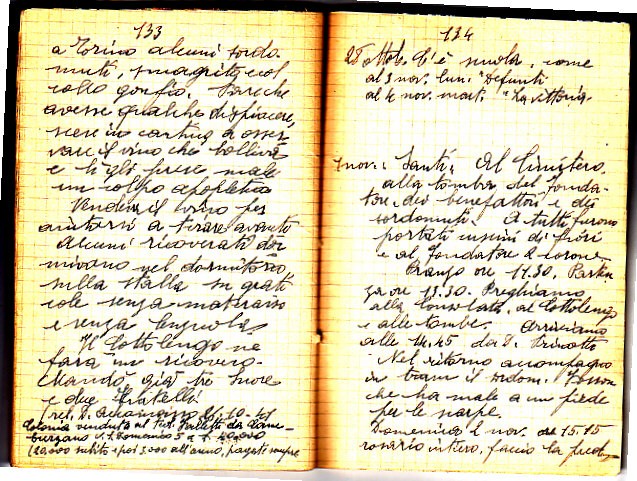 133
a Torino alcuni sordo-
muti, smagrito e col
collo gonfio. Pare che
avesse qualche dispiacere,
scese in cantina a osser-
vare il vino che bolliva
e lì gli prese male
un colpo apopletico
Vendeva il vino per
aiutarsi a tirare avanti
Alcuni ricoverati dor-
mivano nel dormitorio
sulla stalla su grati-
cole senza materasso
e senza lenzuola,
Il Cottolengo ne
farà un ricovero
già tre Suore
e due Fratelli
Colonia venduta al
burzano S. Domenico 5 a
(20.000 subito e poi 3.000 all'anno, pagate sempre
134
28 ottob. C'è scuola, come
al 3 nov. lun. "Defunti
al 4 nov. mart. "La vittoria
1 nov. Santi. Al Cimitero,
alla tomba del fonda-
tore, dei benefattori e dei
sordomuti. A tutti furono
portati insieme di fiori
e al fondatore 2 corone
Pranzo ore 11.30, Parten-
za ore 13.30. Preghiamo
alla Consolata, al Cottolengo
e alle tombe. Arriviamo
alle 14.45 da D.
Nel ritorno accompagno
in tram il sordom.
che ha male a un piede
per le scarpe.
Domenica 2 nov. 15.15
rosario intero, faccio la